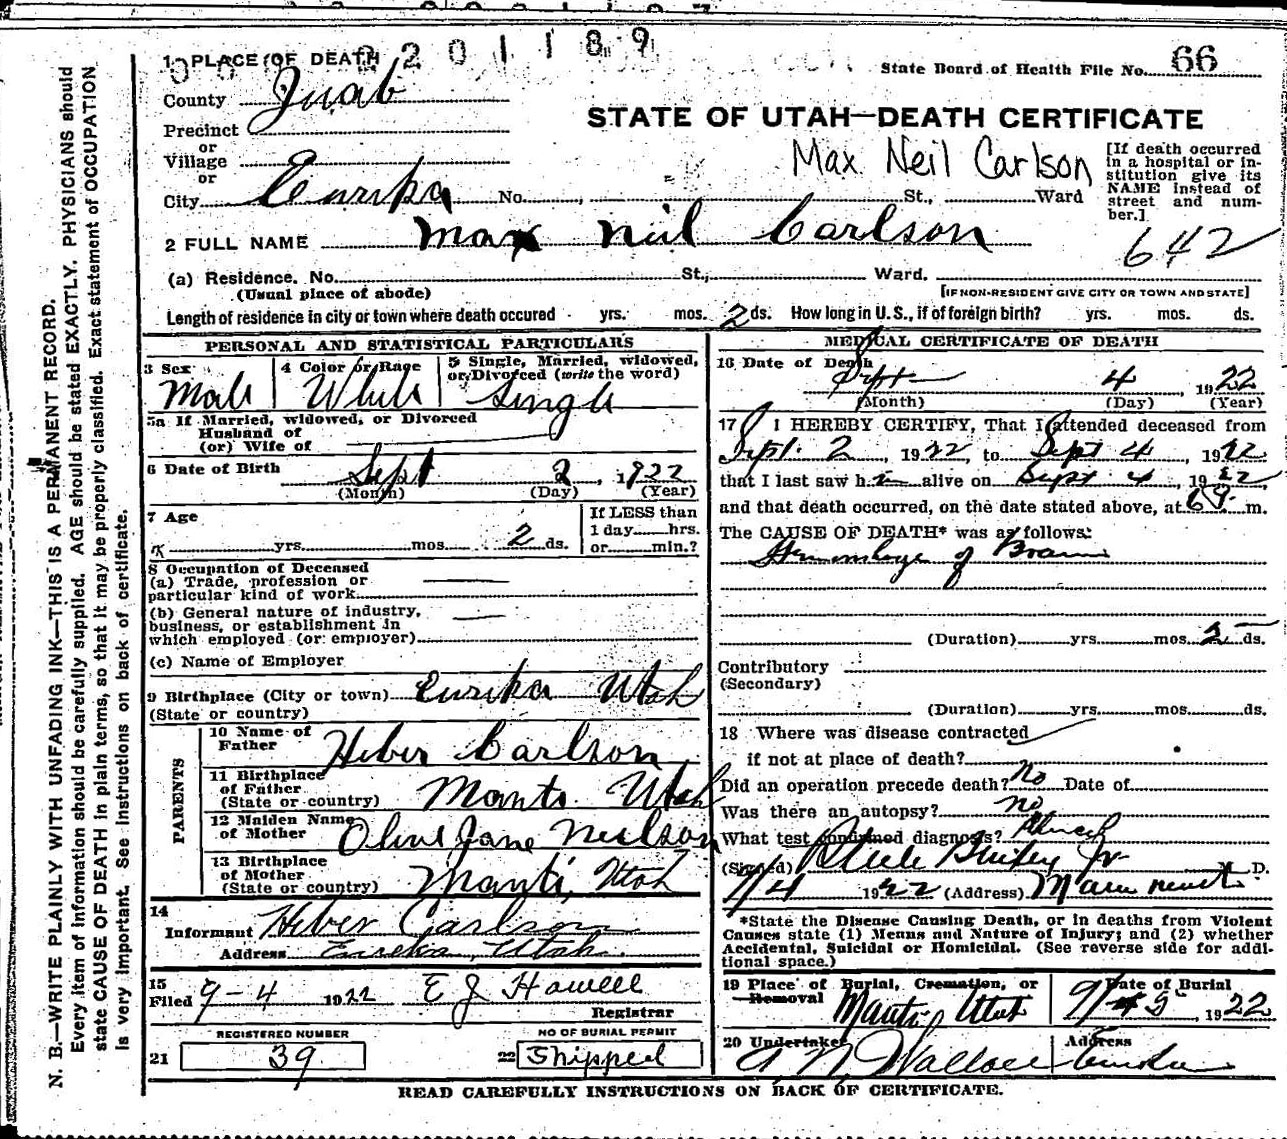 2201189
1 PLACE OF DEATH
State Board of Health File No. 66
County Juab
STATE OF UTAH—DEATH CERTIFICATE
Precinct
or
Village
or
City Eurika No. St., Ward
Max Neil Carlson
[If death occurred in a hospital or institution give its NAME instead of street and number.]
2 FULL NAME Max Neil Carlson
642
(a) Residence. No. St., Ward.
(Usual place of abode)
[IF NON-RESIDENT GIVE CITY OR TOWN AND STATE]
Length of residence in city or town where death occured yrs. mos. 2 ds. How long in U.S., if of foreign birth? yrs. mos. ds.
PERSONAL AND STATISTICAL PARTICULARS
3 Sex Male
4 Color or Race White
5 Single, Married, widowed, or Divorced (write the word) Single
5a If Married, widowed, or Divorced
Husband of
(or) Wife of
6 Date of Birth Sept 2, 1922
(Month) (Day) (Year)
7 Age
yrs. mos. 2 ds.
If LESS than
1 day hrs.
or min.?
8 Occupation of Deceased
(a) Trade, profession or
particular kind of work
(b) General nature of industry,
business, or establishment in
which employed (or employer)
(c) Name of Employer
9 Birthplace (City or town) Eurika Utah
(State or country)
PARENTS
10 Name of Father Heber Carlson
11 Birthplace of Father (State or country) Manti Utah
12 Maiden Name of Mother Olive Jane Neilson
13 Birthplace of Mother (State or country) Manti, Utah
14
Informant Heber Carlson
Address Eureka, Utah.
15
Filed 9-4 1922 E J Howell
Registrar
REGISTERED NUMBER
21 39
NO OF BURIAL PERMIT
22 Shipped
MEDICAL CERTIFICATE OF DEATH
16 Date of Death
Sept 4, 1922
(Month) (Day) (Year)
17 I HEREBY CERTIFY, That I attended deceased from
Sept. 2, 1922, to Sept 4, 1922
that I last saw h alive on Sept 4, 1922
and that death occurred, on the date stated above, at m.
The CAUSE OF DEATH* was as follows:
Hemorrhage of Brain
(Duration) yrs. mos. 2 ds.
Contributory
(Secondary)
(Duration) yrs. mos. ds.
18 Where was disease contracted
if not at place of death?
Did an operation precede death? No Date of
Was there an autopsy? no
What test confirmed diagnosis?
(Signed) Steele Bailey Jr. M. D.
9/4 1922 (Address) Mammoth
*State the Disease Causing Death, or in deaths from Violent
Causes state (1) Means and Nature of Injury; and (2) whether
Accidental, Suicidal or Homicidal. (See reverse side for additional space.)
19 Place of Burial, Cremation, or Removal Manti, Utah
Date of Burial 9/5, 1922
20 Undertaker A N Wallace
Address Eureka
READ CAREFULLY INSTRUCTIONS ON BACK OF CERTIFICATE.
N. B.—WRITE PLAINLY WITH UNFADING INK—THIS IS A PERMANENT RECORD.
Every item of information should be carefully supplied. AGE should be stated EXACTLY. PHYSICIANS should
state CAUSE OF DEATH in plain terms, so that it may be properly classified. Exact statement of OCCUPATION
is very important. See instructions on back of certificate.